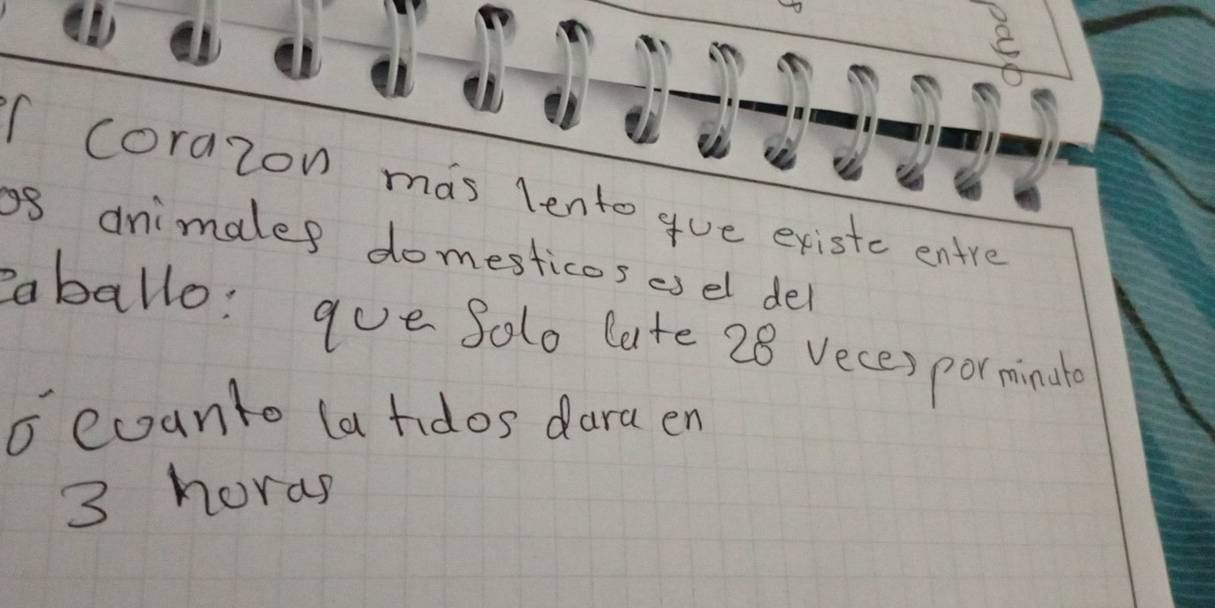 corazon más lento que existe entre
animales domesticos es el del
caballo: que Solo late 28 veces por minuto
ó cuanto latidos dara en
3 horas